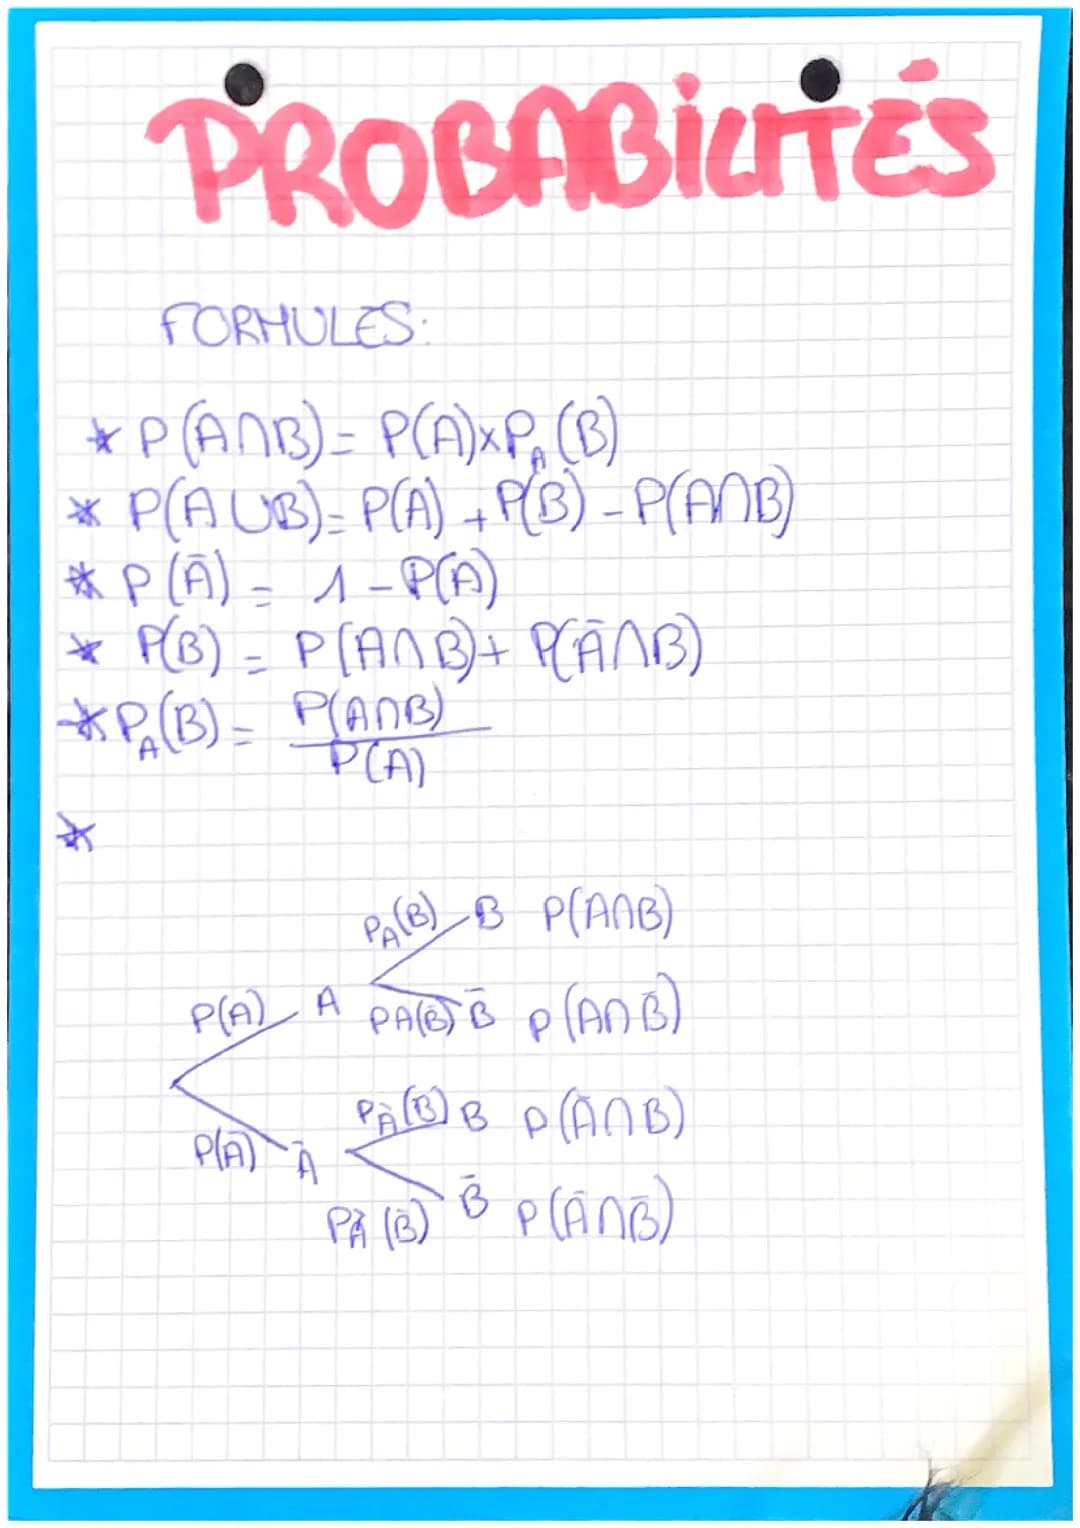 PROBABILITÉS
FORMULES:
* P(A∩B) = P(A)×P_A(B)
* P(A∪B) = P(A) + P(B) - P(A∩B)
* P(Ā) = 1 - P(A)
* P(B) = P(A∩B) + P(Ā∩B)
* P_A(B) = P(A∩B)
P(A)
*
P_A(B) B P(A∩B)
P(A) A PA(B̄) B̄ P(A∩B̄)
P_Ā(B) B P(Ā∩B)
P(Ā) Ā
PĀ(B̄) B̄ P(Ā∩B̄)